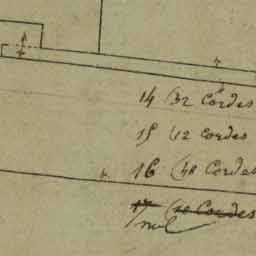 14 (32 Cordes
15 (12 cordes
16 (48 Cordes
17 (10 Cordes
nul